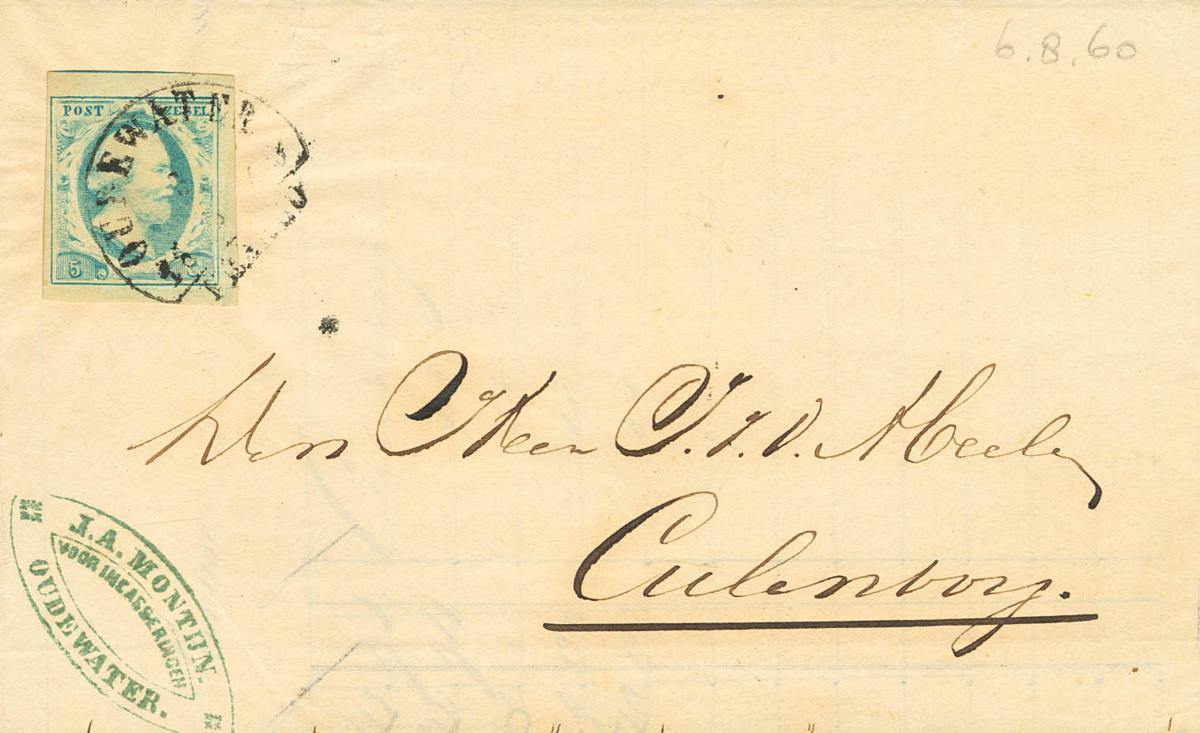 6.8.60
POST ZEGEL
OUDEWATER
5 c
Den Heer
Culenborg.
J.A. MONTIJN.
VOOR INCASSEERINGEN
OUDEWATER.